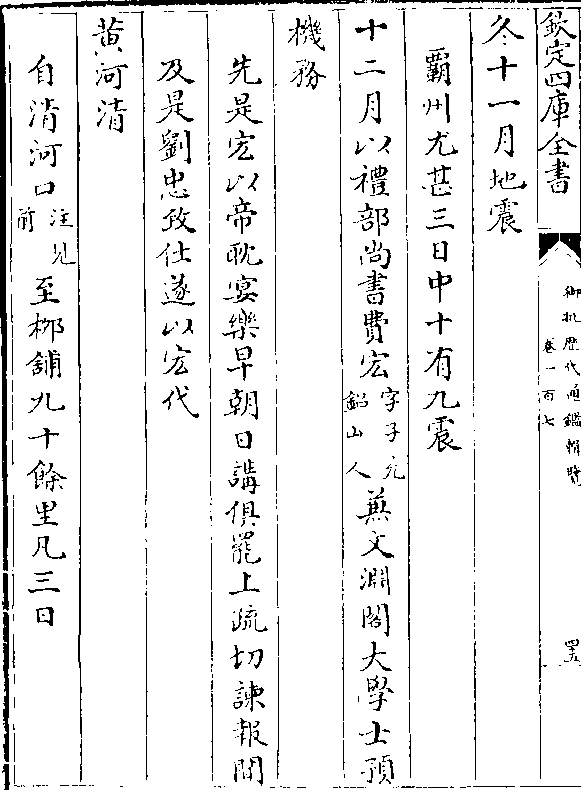 欽定四庫全書
御批歷代通鑑輯覽
卷一百七
四五
冬十一月地震
霸州尤甚三日中十有九震
十二月以禮部尚書費宏字子充鉛山人兼文淵閣大學士預
機務
先是宏以帝耽宴樂早朝日講俱罷上疏切諫報聞
及是劉忠致仕遂以宏代
黄河清
自清河口注見前至栁鋪九十餘里凡三日